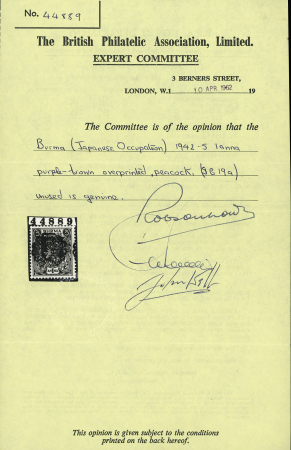 No. 44889
The British Philatelic Association, Limited.
EXPERT COMMITTEE
3 BERNERS STREET,
LONDON, W.1 10 APR 1962 19
The Committee is of the opinion that the
Burma (Japanese Occupation) 1942-5 1 anna
purple-brown overprinted peacock (SG 19a)
unused is genuine.
44889
This opinion is given subject to the conditions
printed on the back hereof.